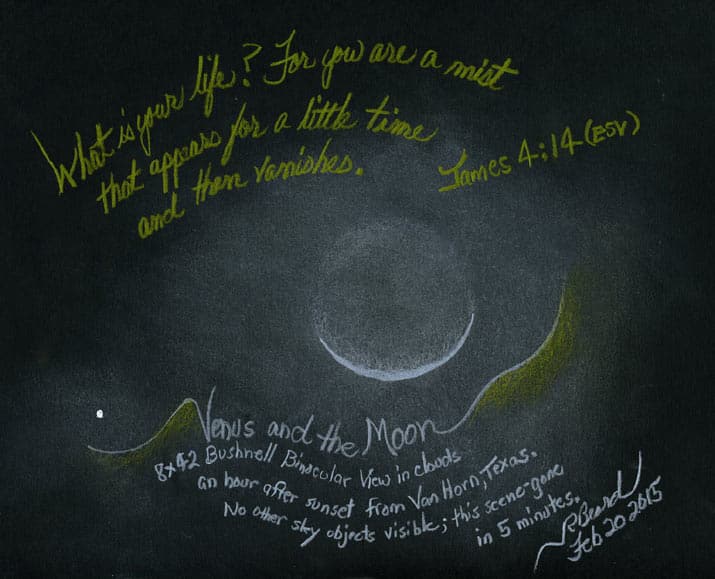 What is your life? For you are a mist
that appears for a little time
and then vanishes.
James 4:14 (ESV)
Venus and the Moon
8x42 Bushnell Binocular View in clouds
an hour after sunset from Van Horn, Texas.
No other sky objects visible; this scene gone
in 5 minutes.
R Beard
Feb 20 2015